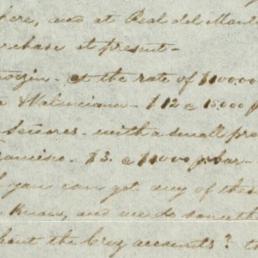 here, and at Real del Monte
purchase at present -
- at the rate of $100.00
a Valenciana - $12 a 15.000 p
Señores - with a small pro
Francisco - $3. a $1000 p. bar -
you can get any of the
know, and we do someth
about the Cruz accounts? to